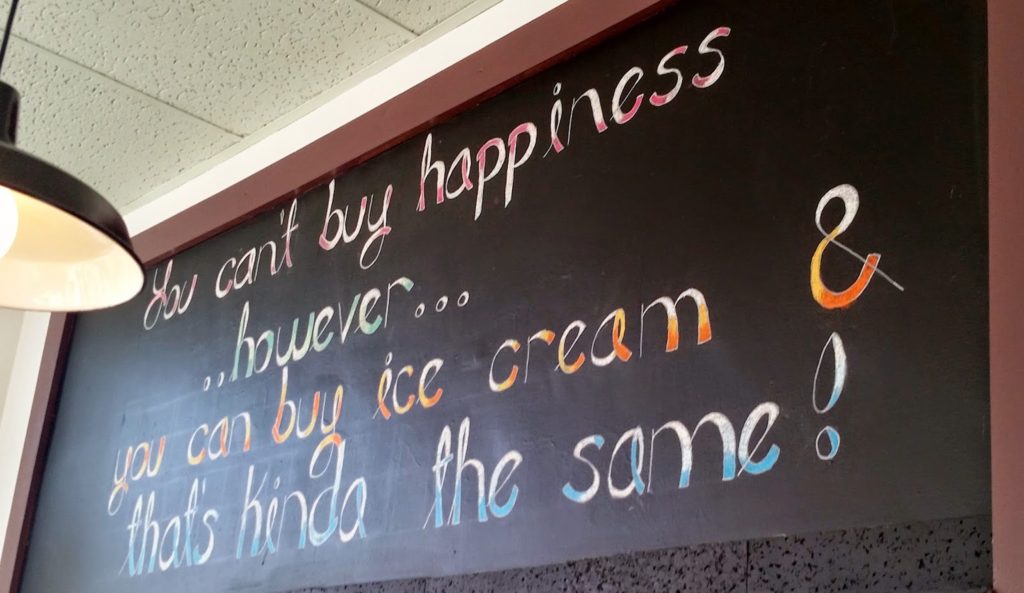 You can't buy happiness
..however...
you can buy ice cream &
that's kinda the same!